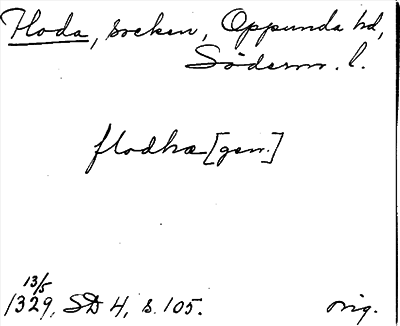 Floda, socken, Oppunda hd,
Söderm. l.
flodhæ [gen.]
13/5
1329, SD 4, s. 105. orig.